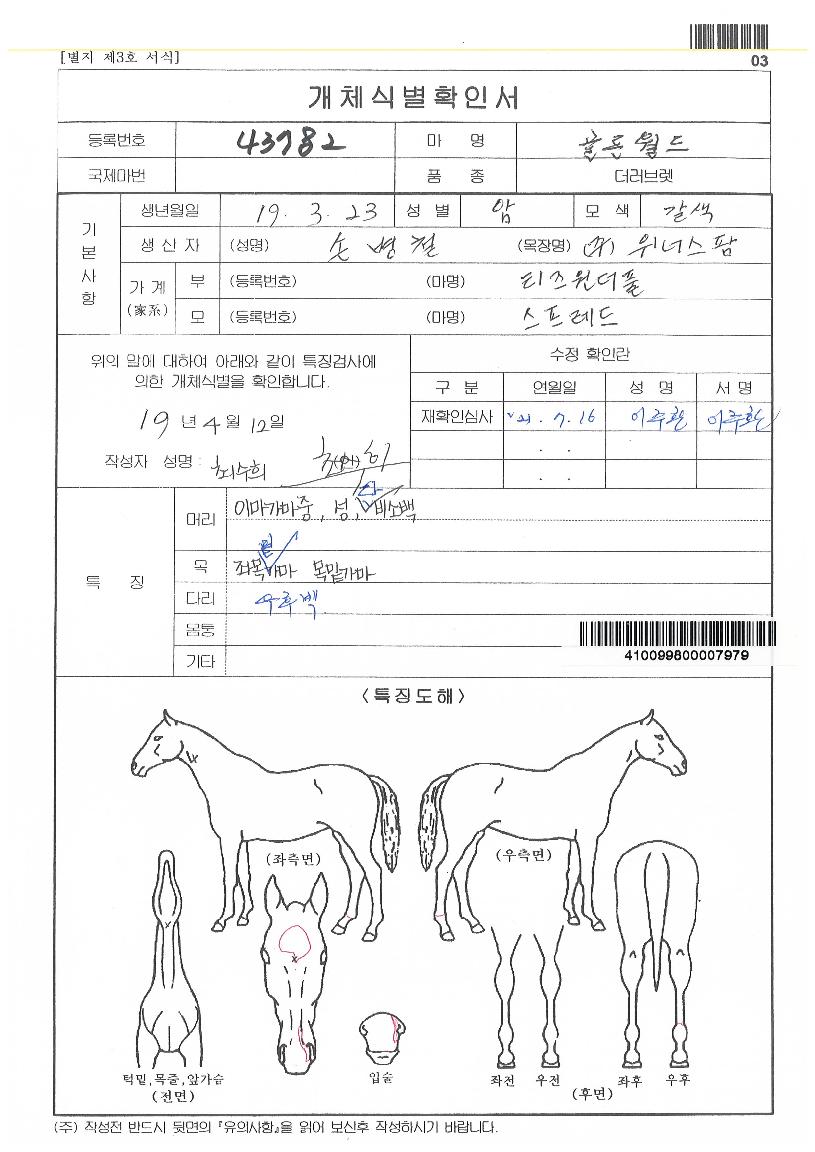 [별지 제3호 서식]
03
개체식별확인서
등록번호 43782 마 명 골든월드
국제마번 품 종 더러브렛
기본사항 생년월일 19. 3. 23 성 별 암 모 색 갈색
생 산 자 (성명) 손병철 (목장명) (주) 위너스팜
가 계 (家系) 부 (등록번호) (마명) 티즈원더풀
모 (등록번호) (마명) 스프레드
위의 말에 대하여 아래와 같이 특징검사에
의한 개체식별을 확인합니다.
19 년 4 월 12 일
작성자 성명 : 최수희
수정 확인란
구 분 연월일 성 명 서 명
재확인심사 '21. 7. 16 이주환 이주환
. .
. .
특 징
머리 이마가마중, 성, 비소백
목 좌목가마 목밑가마
다리 우후백
몸통
기타
410099800007979
<특징도해>
(좌측면) (우측면)
턱밑,목줄,앞가슴
(전면)
입술
좌전 우전 좌후 우후
(후면)
(주) 작성전 반드시 뒷면의 『유의사항』을 읽어 보신후 작성하시기 바랍니다.